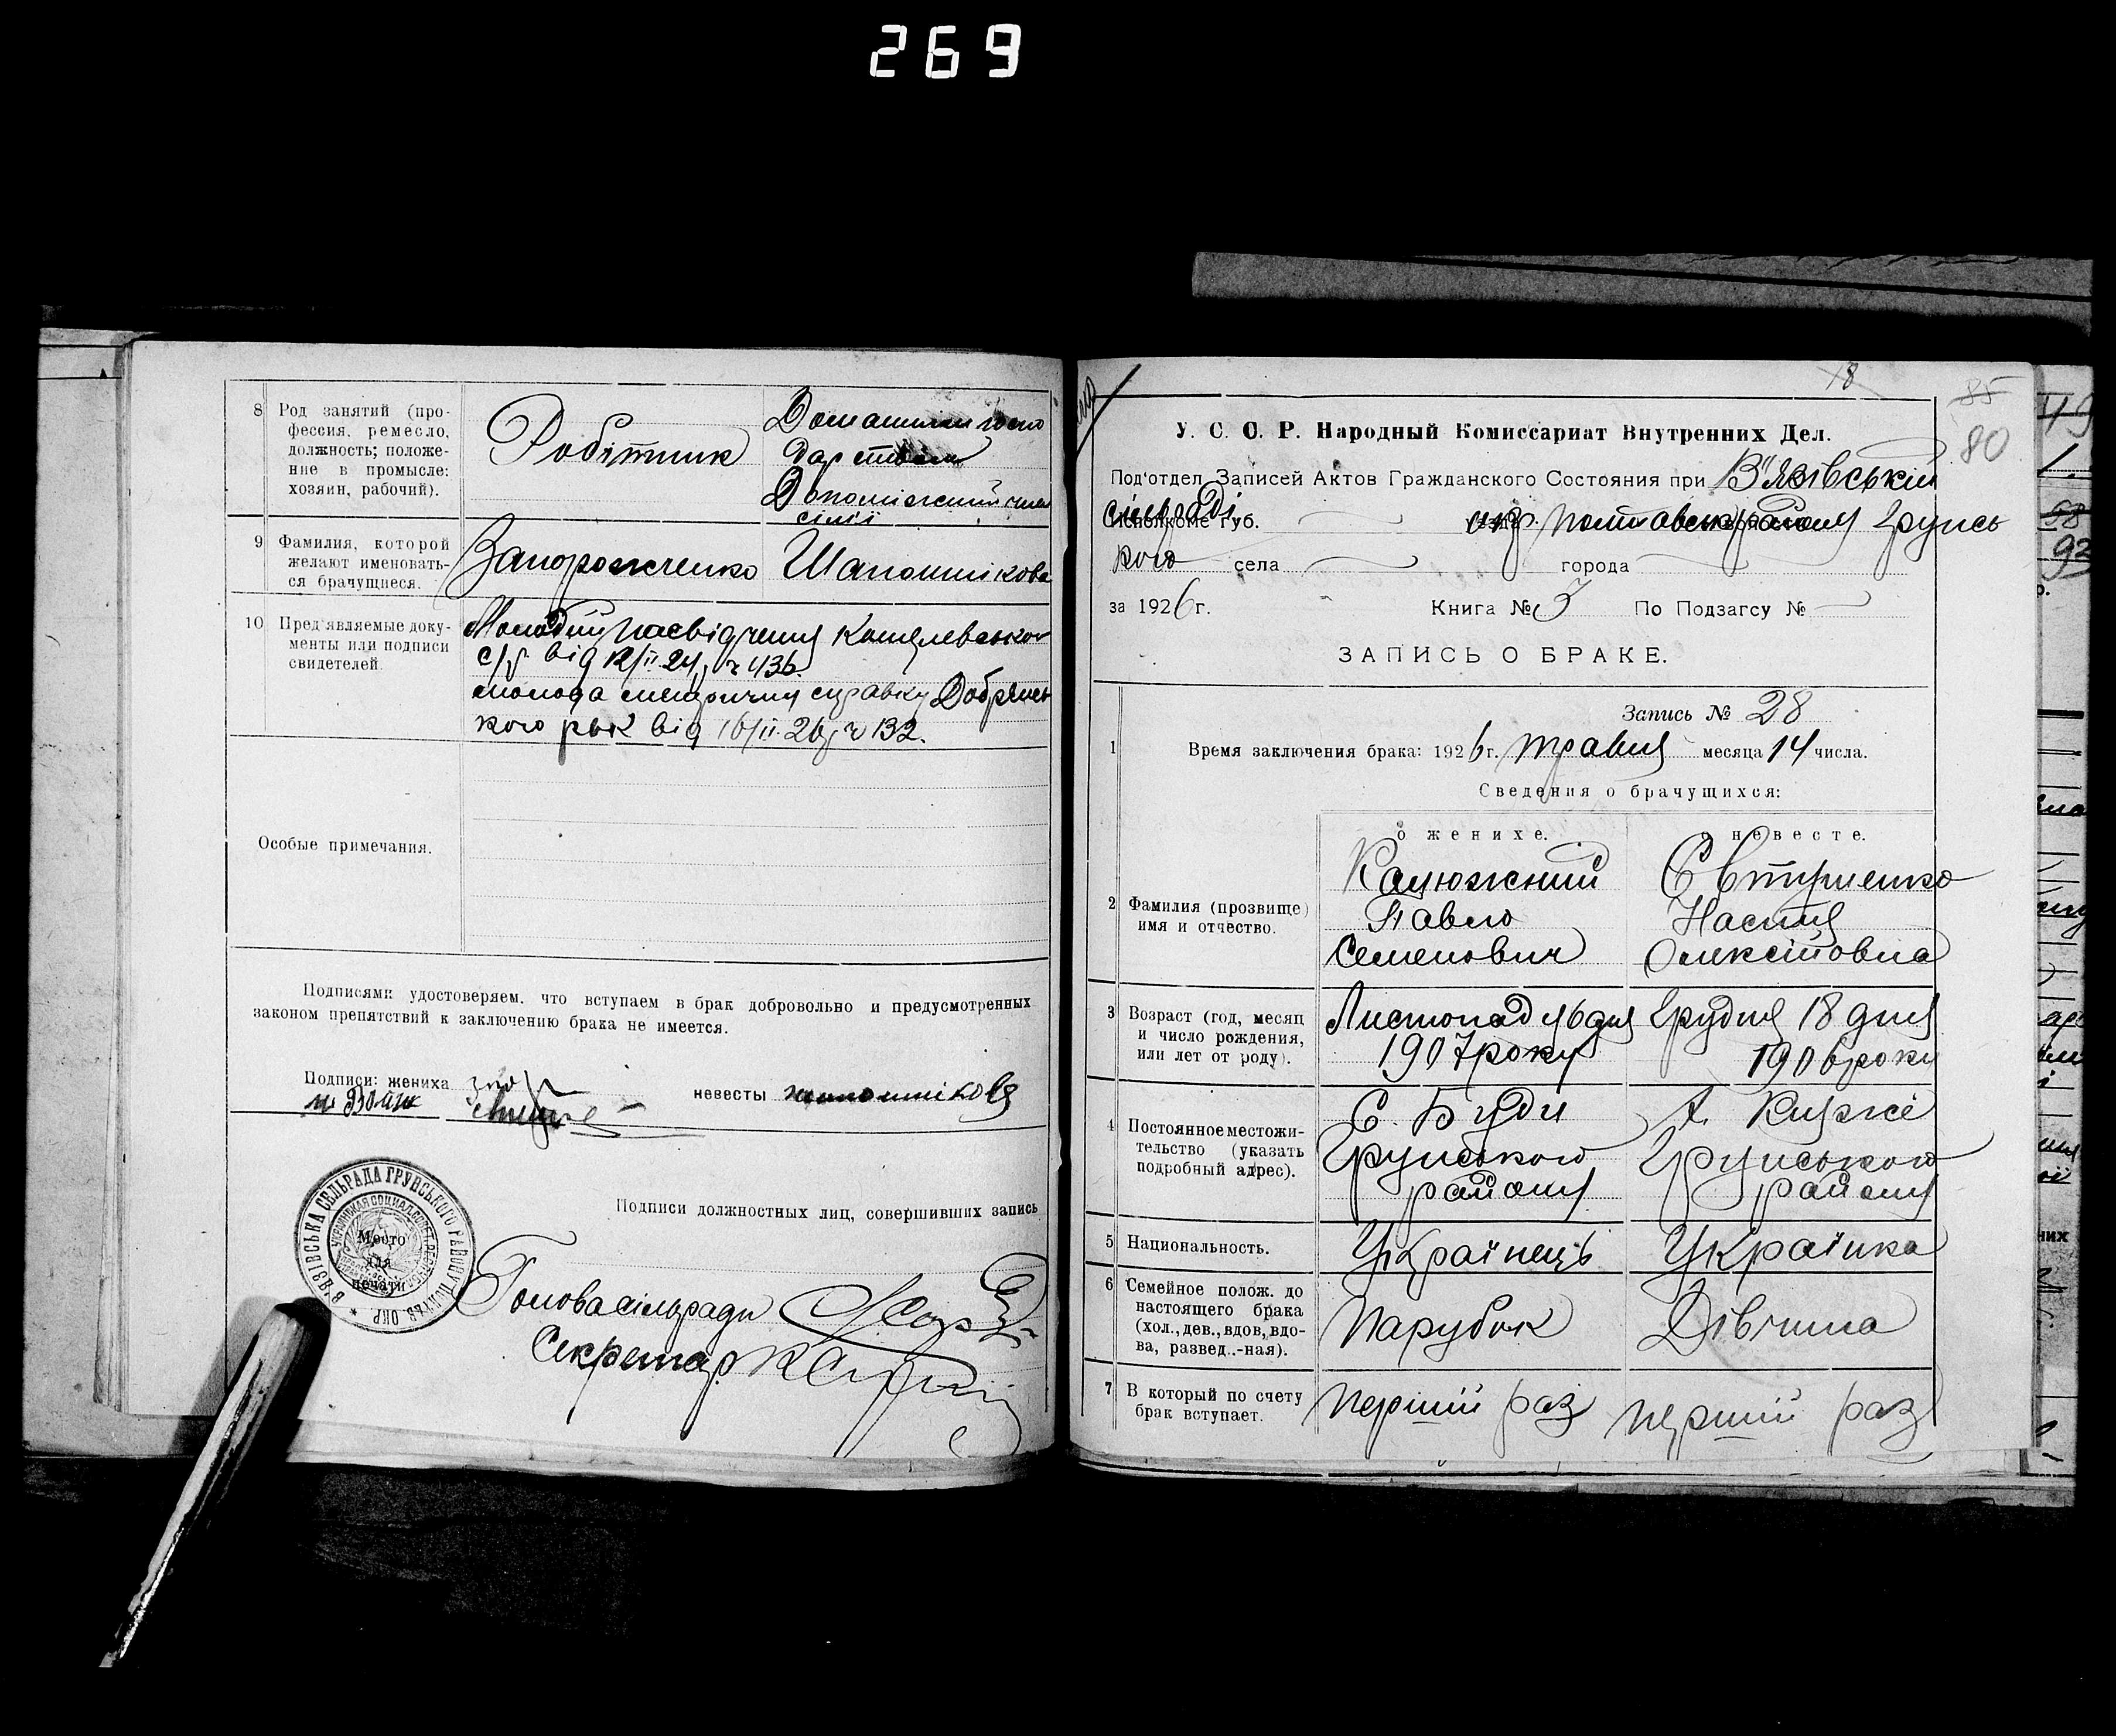 269
8 Род занятий (про-
фессия, ремесло,
должность; положе-
ние в промысле:
хозяин, рабочий).
Робітник
Домашнім госпо
дарством
Допоміжний член
сім'ї
9 Фамилия, которой
желают именовать-
ся брачущиеся.
Запорожченко Шапошнікова
10 Пред'являемые доку-
менты или подписи
свидетелей.
Молодий посвідчення
с/р від 12/II 24 ч 436.
молода метричну справку Добрянсь
кого рвк від 16/II. 26 р ч 132.
Особые примечания.
Подписями удостоверяем, что вступаем в брак добровольно и предусмотренных
законом препятствий к заключению брака не имеется.
Подписи: жениха
невесты Шапошнікова
В'ЯЗІВСЬКА СЕЛЬРАДА ГРУНСЬКОГО РАЙОНУ ПОЛТАВ. ОКР.
Место
для
печати
Подписи должностных лиц, совершивших запись
Голова сільради
Секретар
18
85
80
У. С. С. Р. Народный Комиссариат Внутренних Дел.
Под'отдел Записей Актов Гражданского Состояния при В'Язівській
сільраді
Исполкоме губ. окр Полтавськ району Грунсь
кого села города
за 1926 г. Книга № 3 По Подзагсу №
ЗАПИСЬ О БРАКЕ.
Запись № 28
1 Время заключения брака: 1926 г. травня месяца 14 числа.
Сведения о брачущихся:
о женихе. о невесте.
2 Фамилия (прозвище)
имя и отчество.
Калюжний
Павло
Семенович
Євтушенко
Настя
Олексіївна
3 Возраст (год, месяц
и число рождения,
или лет от роду).
Листопад 16 дня
1907 року
Грудня 18 дня
1906 року
4 Постоянное местожи-
тельство (указать
подробный адрес).
С. Буди
Грунського
району
Х. Княжі
Грунського
району
5 Национальность.
Українець Українка
6 Семейное полож. до
настоящего брака
(хол., дев., вдов, вдо-
ва, развед..-ная).
Парубок Дівчина
7 В который по счету
брак вступает.
перший раз перший раз